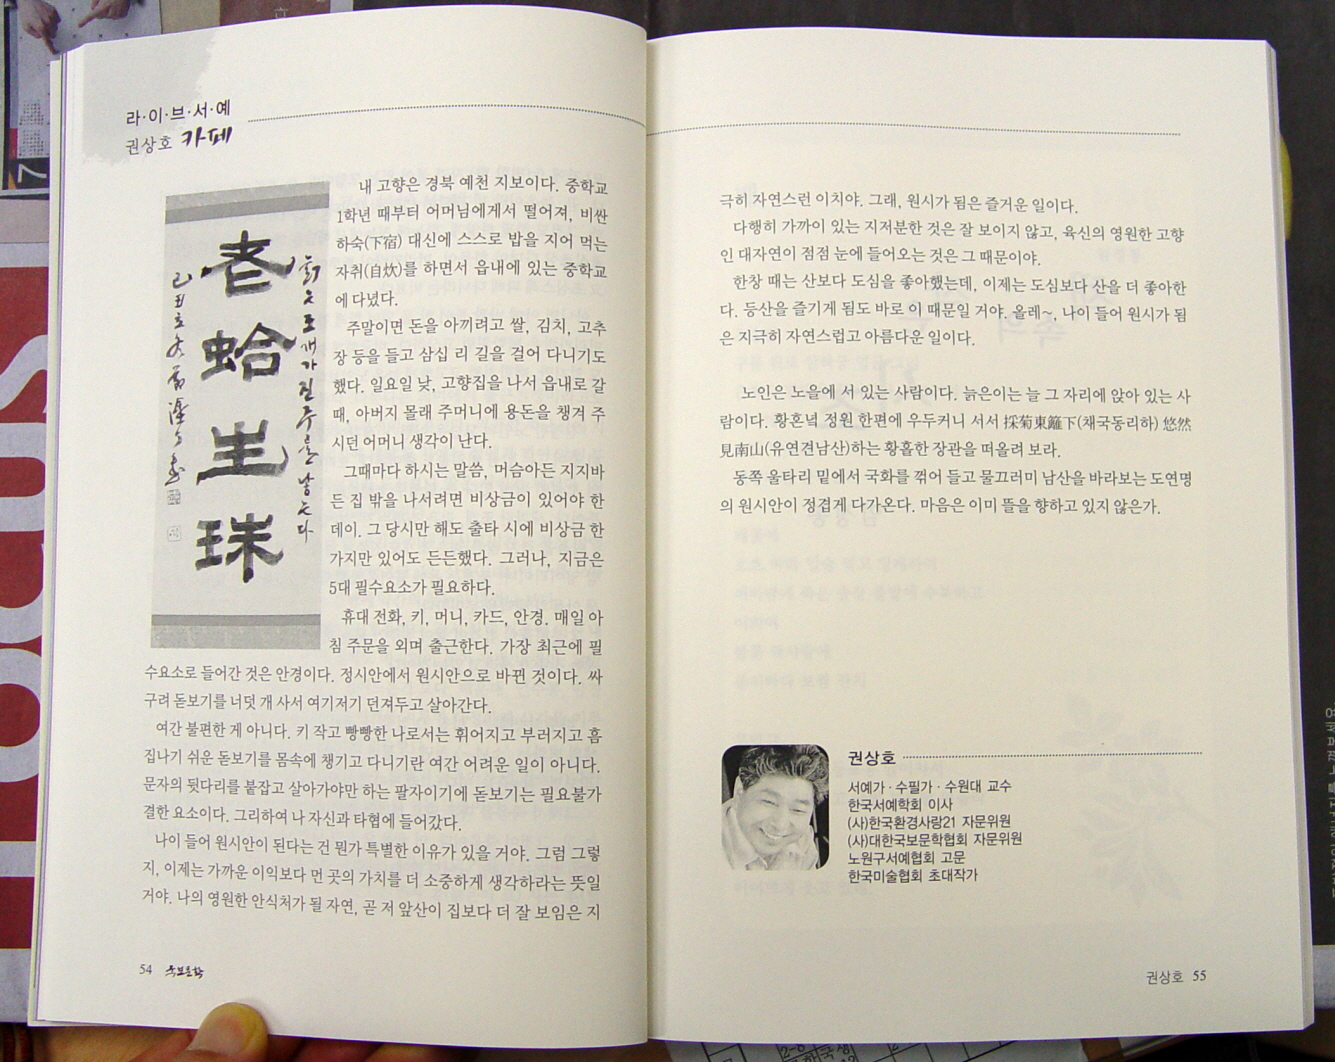 라·이·브·서·예
권상호 카페
老蛤生珠
늙은 조개가 진주를 낳는다
내 고향은 경북 예천 지보이다. 중학교
1학년 때부터 어머님에게서 떨어져, 비싼
하숙(下宿) 대신에 스스로 밥을 지어 먹는
자취(自炊)를 하면서 읍내에 있는 중학교
에 다녔다.
주말이면 돈을 아끼려고 쌀, 김치, 고추
장 등을 들고 삼십 리 길을 걸어 다니기도
했다. 일요일 낮, 고향집을 나서 읍내로 갈
때, 아버지 몰래 주머니에 용돈을 챙겨 주
시던 어머니 생각이 난다.
그때마다 하시는 말씀, 머슴아든 지지바
든 집 밖을 나서려면 비상금이 있어야 한
데이. 그 당시만 해도 출타 시에 비상금 한
가지만 있어도 든든했다. 그러나, 지금은
5대 필수요소가 필요하다.
휴대 전화, 키, 머니, 카드, 안경. 매일 아
침 주문을 외며 출근한다. 가장 최근에 필
수요소로 들어간 것은 안경이다. 정시안에서 원시안으로 바뀐 것이다. 싸
구려 돋보기를 너덧 개 사서 여기저기 던져두고 살아간다.
여간 불편한 게 아니다. 키 작고 빵빵한 나로서는 휘어지고 부러지고 흠
집나기 쉬운 돋보기를 몸속에 챙기고 다니기란 여간 어려운 일이 아니다.
문자의 뒷다리를 붙잡고 살아가야만 하는 팔자이기에 돋보기는 필요불가
결한 요소이다. 그리하여 나 자신과 타협에 들어갔다.
나이 들어 원시안이 된다는 건 뭔가 특별한 이유가 있을 거야. 그럼 그렇
지, 이제는 가까운 이익보다 먼 곳의 가치를 더 소중하게 생각하라는 뜻일
거야. 나의 영원한 안식처가 될 자연, 곧 저 앞산이 집보다 더 잘 보임은 지
54 국보문학
극히 자연스런 이치야. 그래, 원시가 됨은 즐거운 일이다.
다행히 가까이 있는 지저분한 것은 잘 보이지 않고, 육신의 영원한 고향
인 대자연이 점점 눈에 들어오는 것은 그 때문이야.
한창 때는 산보다 도심을 좋아했는데, 이제는 도심보다 산을 더 좋아한
다. 등산을 즐기게 됨도 바로 이 때문일 거야. 올레~, 나이 들어 원시가 됨
은 지극히 자연스럽고 아름다운 일이다.
노인은 노을에 서 있는 사람이다. 늙은이는 늘 그 자리에 앉아 있는 사
람이다. 황혼녘 정원 한편에 우두커니 서서 採菊東籬下(채국동리하) 悠然
見南山(유연견남산)하는 황홀한 장관을 떠올려 보라.
동쪽 울타리 밑에서 국화를 꺾어 들고 물끄러미 남산을 바라보는 도연명
의 원시안이 정겹게 다가온다. 마음은 이미 뜰을 향하고 있지 않은가.
권상호
서예가 · 수필가 · 수원대 교수
한국서예학회 이사
(사)한국환경사랑21 자문위원
(사)대한국보문학협회 자문위원
노원구서예협회 고문
한국미술협회 초대작가
권상호 55